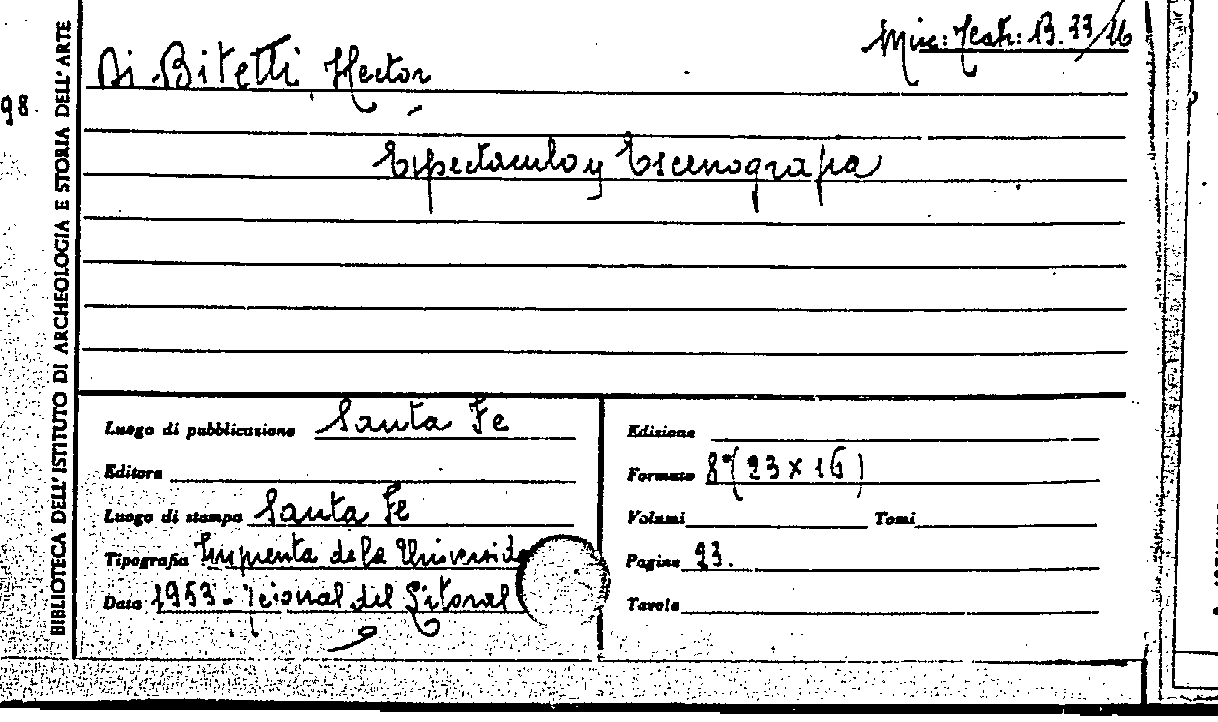 Misc: Teatr: B. 33/16
Di Bitetti, Hector
98
Espectaculo y Escenografia
BIBLIOTECA DELL' ISTITUTO DI ARCHEOLOGIA E STORIA DELL' ARTE
Luogo di pubblicazione Santa Fe
Editore
Luogo di stampa Santa Fe
Tipografia Imprenta de la Universida
Data 1953 - cional del Litoral
Edizione
Formato 8° (23 x 16)
Volumi Tomi
Pagine 23.
Tavole